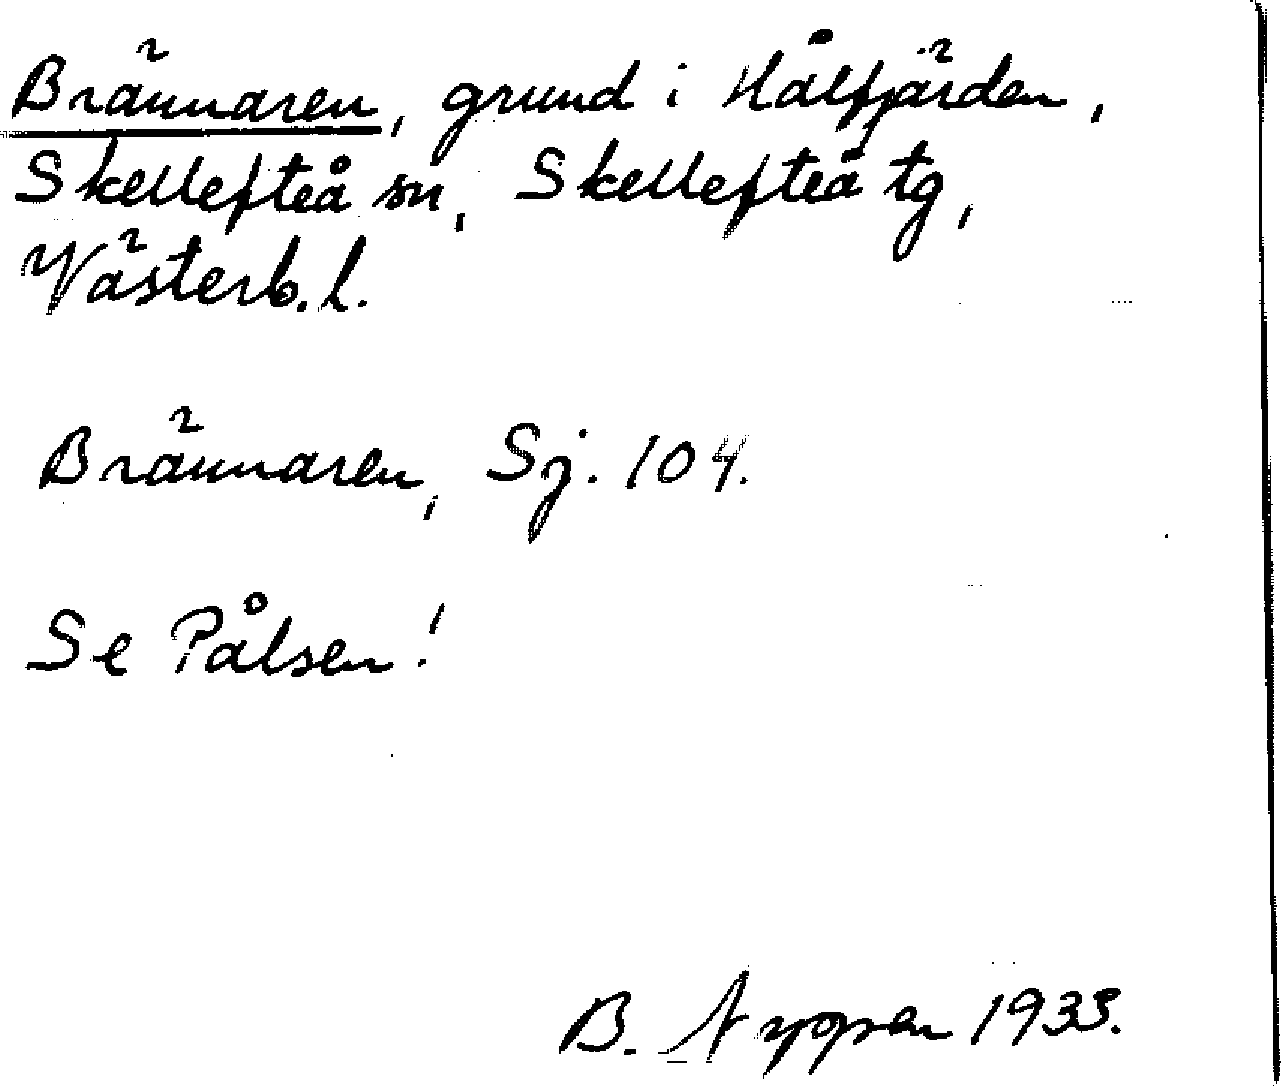 Brännaren, grund i Hålfjärden,
Skellefteå sn, Skellefteå tg,
Västerb. l.
Brännaren, Sj. 104.
Se Pålsen!
B. 1933.